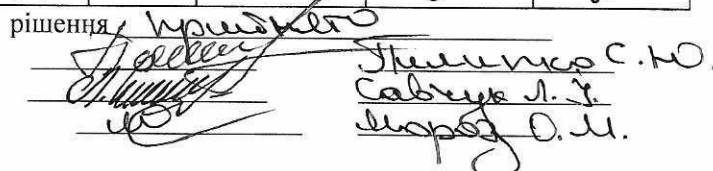 рішення прийнято
Пилипко С.Ю.
Савчук Л.
Мороз О.М.